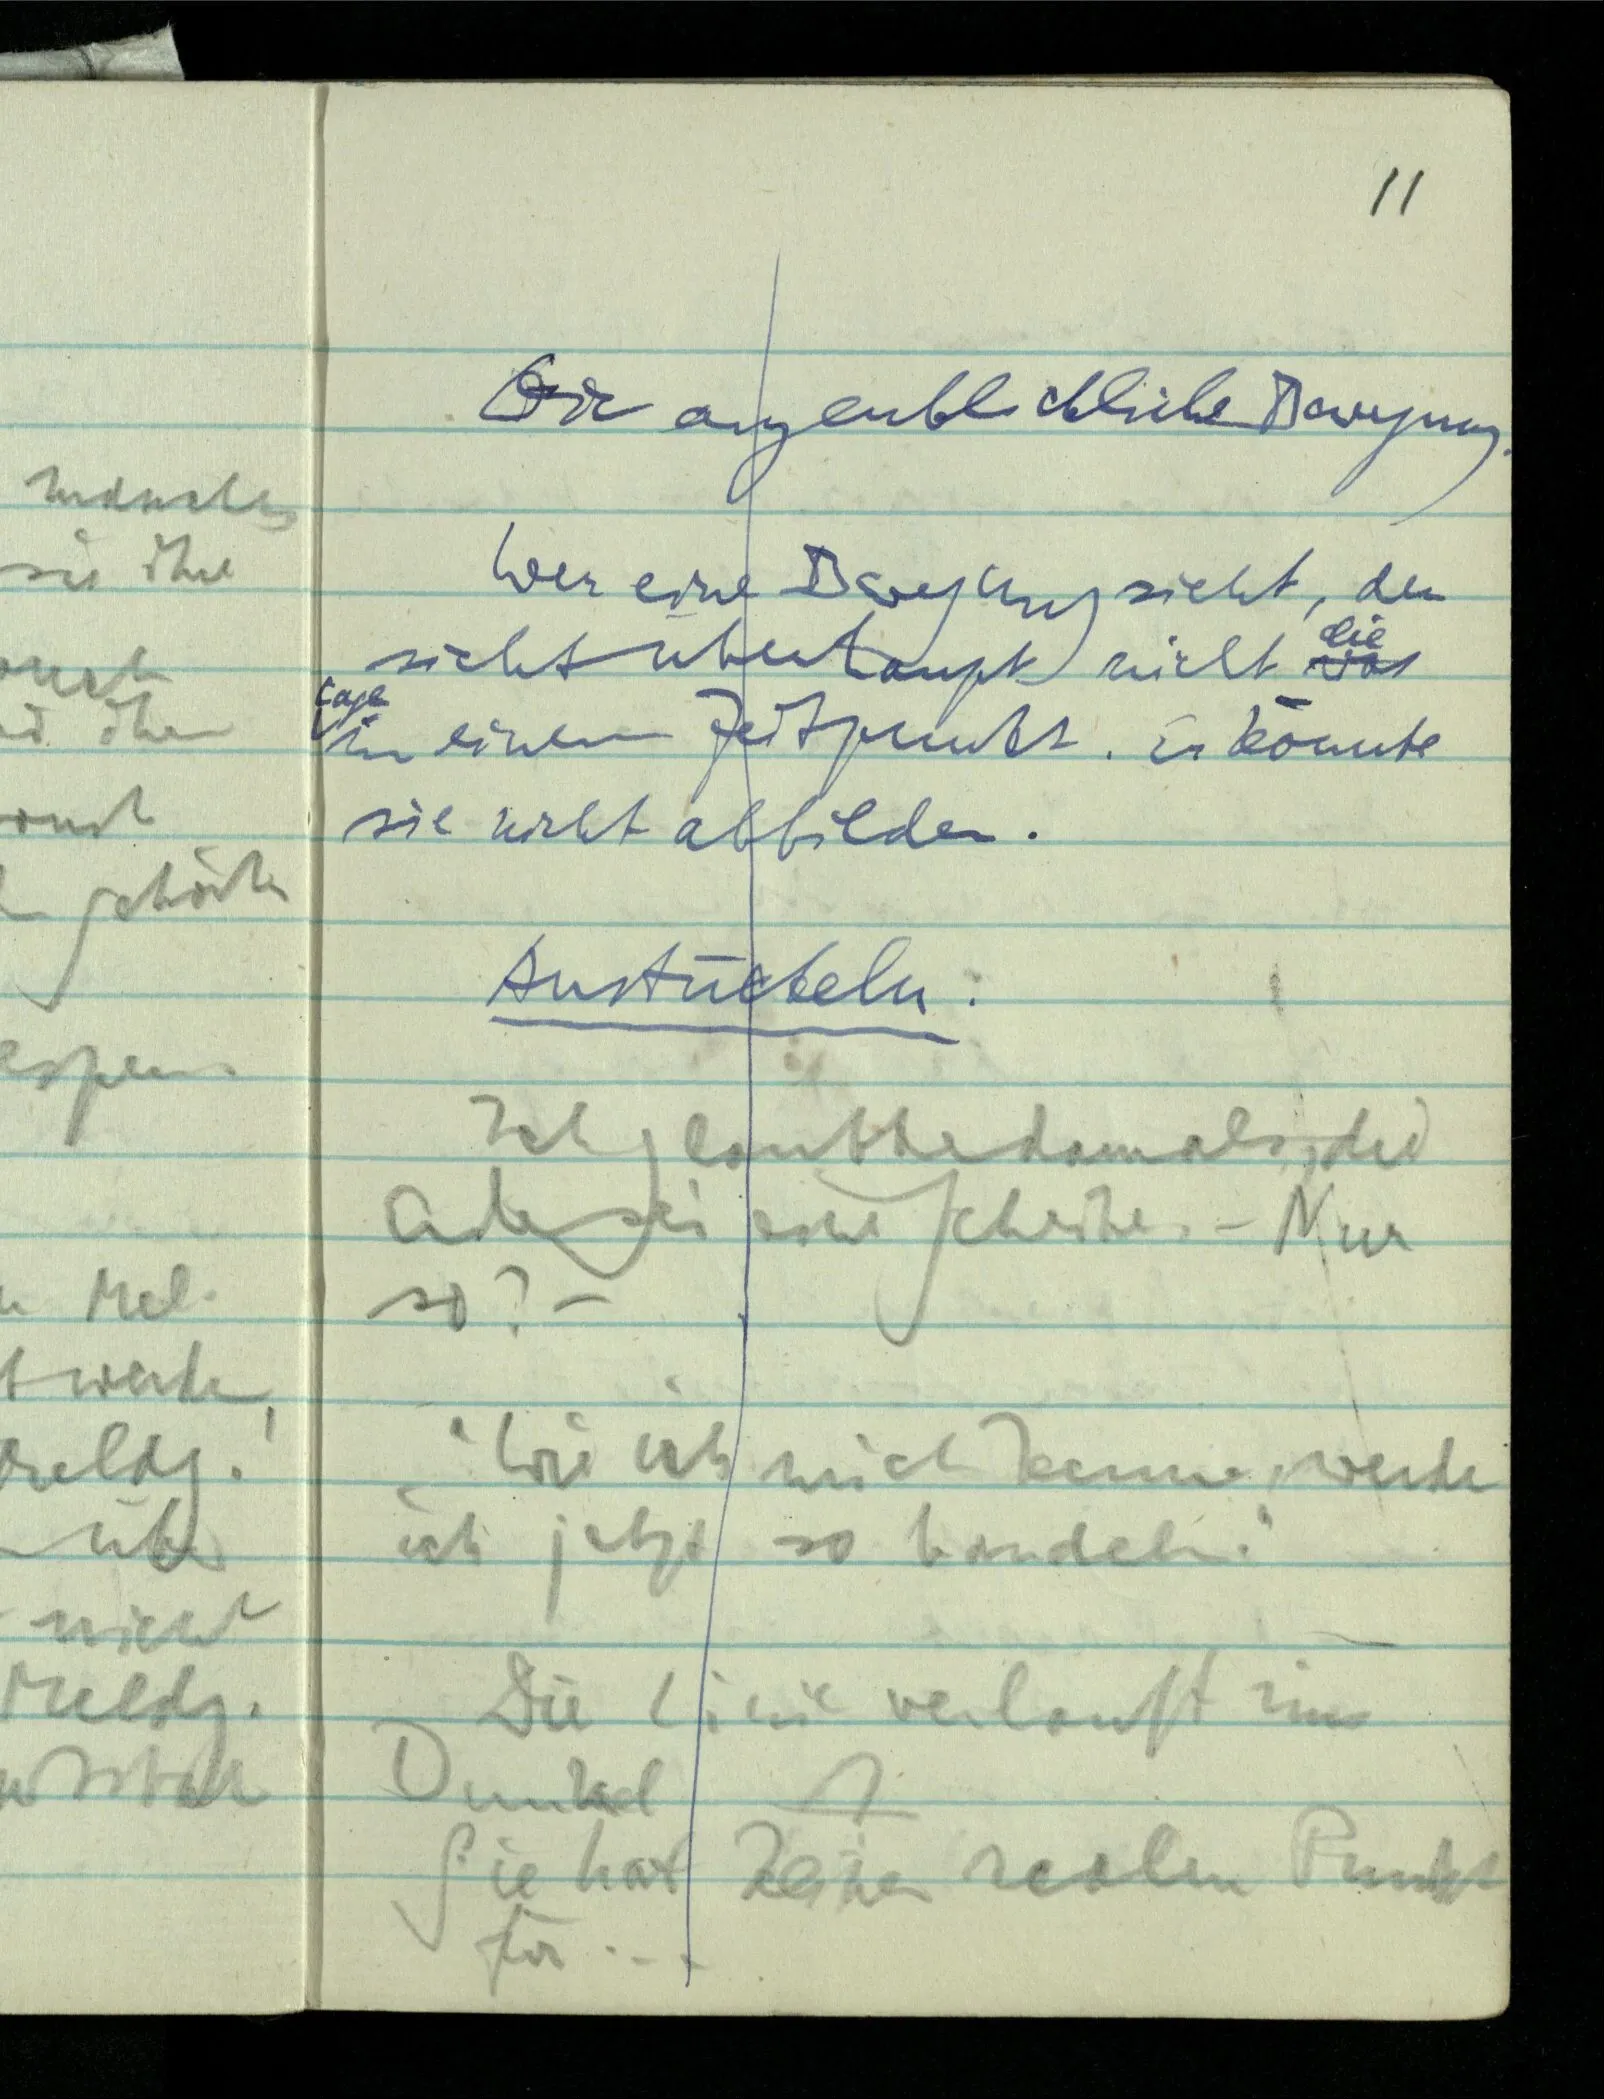 11
Die augenblickliche Bewegung.
Wer eine Bewegung sieht, der
sieht überhaupt nicht die
Lage
in einem Zeitpunkt. Er könnte
sie nicht abbilden.
Anstückeln:
Ich glaubte damals, die
Erde sei eine Scheibe. – Nur
so? –
"Wie ich mich kenne, werde
ich jetzt so handeln."
Die Linie verlauft ins
Dunkel
Sie hat keinen realen Punkt
für ...
sie ihre
gehört
Mel-
werden,
Meldg.!
über
nicht
Meldg.